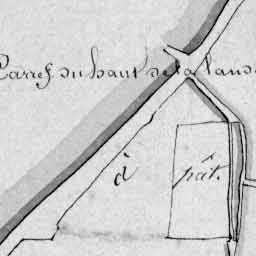 Carref. du haut de la lande
à
pât.